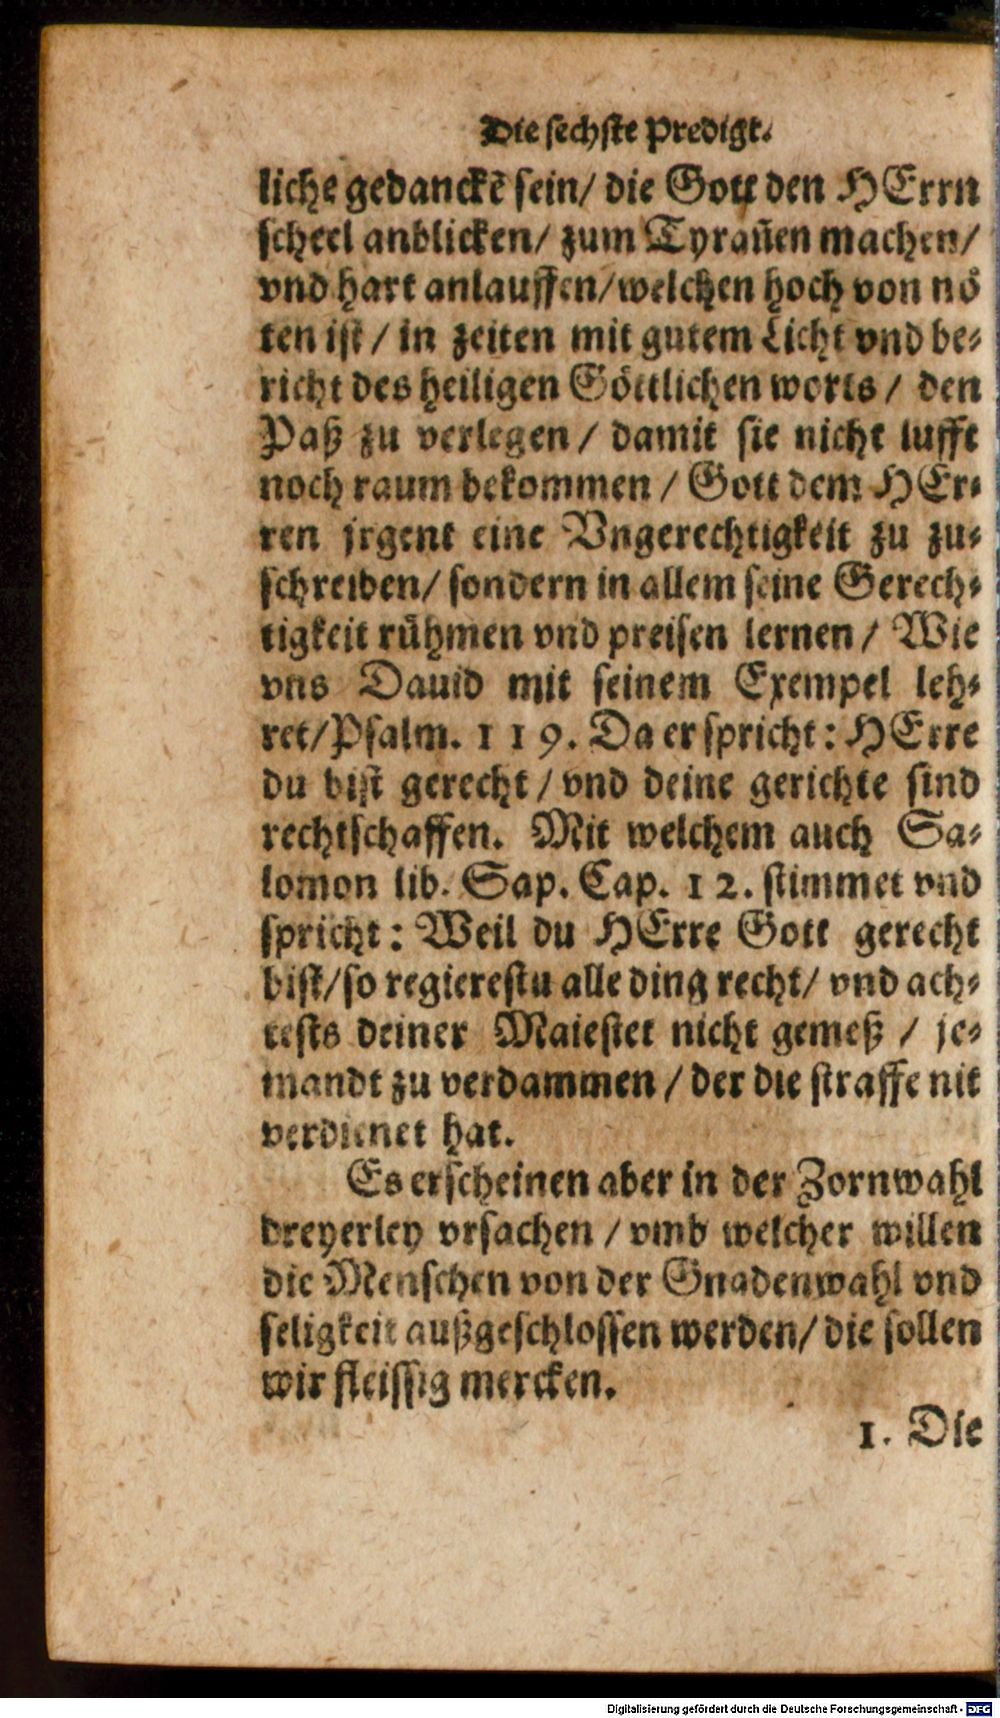 Die sechste Predigt.
liche gedanckē sein/ die Gott den HErrn
scheel anblicken/ zum Tyrañen machen/
vnd hart anlauffen/welchen hoch von nö
ten ist / in zeiten mit gutem Licht vnd be-
richt des heiligen Göttlichen worts / den
Paß zu verlegen / damit sie nicht lufft
noch raum bekommen / Gott dem HEr-
ren jrgent eine Vngerechtigkeit zu zu-
schreiben/ sondern in allem seine Gerech-
tigkeit rühmen vnd preisen lernen / Wie
vns Dauid mit seinem Exempel leh-
ret/Psalm. 119. Da er spricht: HErre
du bist gerecht / vnd deine gerichte sind
rechtschaffen. Mit welchem auch Sa-
lomon lib. Sap. Cap. 12. stimmet vnd
spricht: Weil du HErre Gott gerecht
bist/so regierestu alle ding recht/ vnd ach-
tests deiner Maiestet nicht gemeß / je-
mandt zu verdammen / der die straffe nit
verdienet hat.
Es erscheinen aber in der Zornwahl
dreyerley vrsachen / vmb welcher willen
die Menschen von der Gnadenwahl vnd
seligkeit außgeschlossen werden/ die sollen
wir fleissig mercken.
1. Die
Digitalisierung gefördert durch die Deutsche Forschungsgemeinschaft - DFG